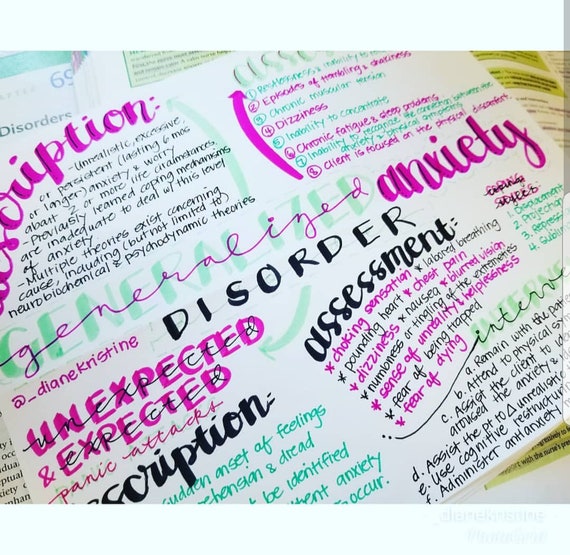 69
Disorders
description:
- Unrealistic, excessive,
or persistent (lasting 6 mos
or longer) anxiety & worry
about 2 or more life circumstances.
- Previously learned coping mechanisms
are inadequate to deal w/ this level
of anxiety
- Multiple theories exist concerning
cause, including (but not limited to)
neurobiochemical & psychodynamic theories
① Restlessness & inability to
② Episodes of trembling & shakiness
③ Chronic muscular tension
④ Dizziness
⑤ Inability to concentrate
⑥ Chronic fatigue & sleep problems
⑦ Inability to recognize the connection between the
anxiety & physical symptoms
⑧ Client is focused on the physical discomfort
GENERALIZED
generalized anxiety
DISORDER
@_dianekristine
assessment:
* choking sensation * labored breathing
* pounding heart * chest pain
* dizziness * nausea * blurred vision
* numbness or tingling of the extremeties
* sense of unreality & helplessness
* fear of being trapped
* fear of dying
coping
styles
1. Displacement
2. Projection
3. Repress
4. Sublim
INTERVE
interve
a. Remain with the patie
b. Attend to physical sym
c. Assist the client to id
provoked the anxiety & id
d. Assist the pt to Δ unrealisti
e. Use cognitive restructuring
f. Administer antianxiety
UNEXPECTED
unexpected
& EXPECTED
expected
panic attacks
description:
sudden onset of feelings
prehension & dread
be identified
anxiety
occur.
_dianekristine